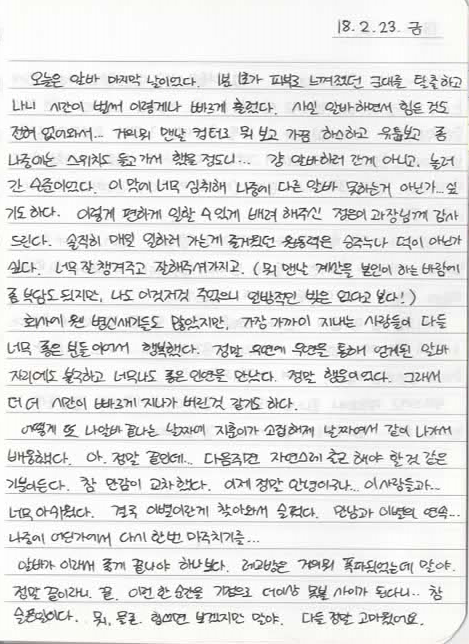 18. 2. 23. 금
오늘은 알바 마지막 날이었다. 1분 1초가 피부로 느껴졌던 군대를 탈출하고
나니 시간이 벌써 이렇게나 빠르게 흘렀다. 사실 알바하면서 힘든 것도
전혀 없어와서... 거의뭐 맨날 컴터로 뭐 보고 가끔 하스하고 유튭보고 좀
나중에는 스위치도 들고가서 했을 정도니... 걍 알바하러 간게 아니고, 놀러
간 수준이었다. 이 맛에 너무 심취해 나중에 다른 알바 못하는거 아닌가...싶
기도 하다. 이렇게 편하게 일할 수 있게 배려 해주신 정은이 과장님께 감사
드린다. 솔직히 매일 일하러 가는게 즐거웠던 원동력은 승주누나 덕이 아닌가
싶다. 너무 잘 챙겨주고 잘해주셔가지고. (뭐 맨날 계산을 본인이 하는 바람에
좀 부담도 되지만, 나도 이것저것 주었으니 일방적인 빚은 없다고 본다!)
회사에 웬 병신새기들도 많았지만, 가장 가까이 지내는 사람들이 다들
너무 좋은 분들이어서 행복했다. 정말 우연에 우연을 통해 얻게된 알바
자리에도 불구하고 너무나도 좋은 인연을 만났다. 정말 행운이었다. 그래서
더 더 시간이 빠르게 지나가 버린것 같기도 하다.
어떻게 또 나 알바 끝나는 날짜에 지훈이가 소집해제 날짜여서 같이 나가서
배웅했다. 아. 정말 끝인데... 다음주면 자연스레 출근 해야 할 것 같은
기분이든다. 참 만감이 교차했다. 이제 정말 안녕이구나... 이사람들과...
너무 아쉬웠다. 결국 이별이란게 찾아와서 슬펐다. 만남과 이별의 연속...
나중에 어딘가에서 다시 한번 마주치기를...
알바가 이래서 좋게 끝나야 하나보다. 레고반은 거의뭐 폭파되었는데 말야.
정말 끝이라니. 끝. 이런 한 순간을 기점으로 더이상 못볼 사이가 된다니.. 참
슬픈일이다. 뭐, 물론 힘쓰면 보겠지만 말야. 다들 정말 고마웠어요.